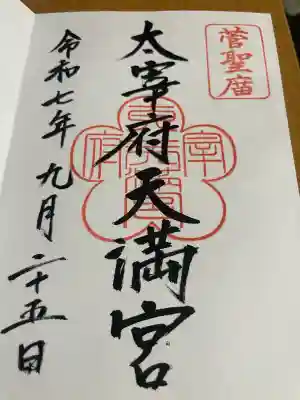 菅聖廟
太宰府天満宮
令和七年九月二十五日